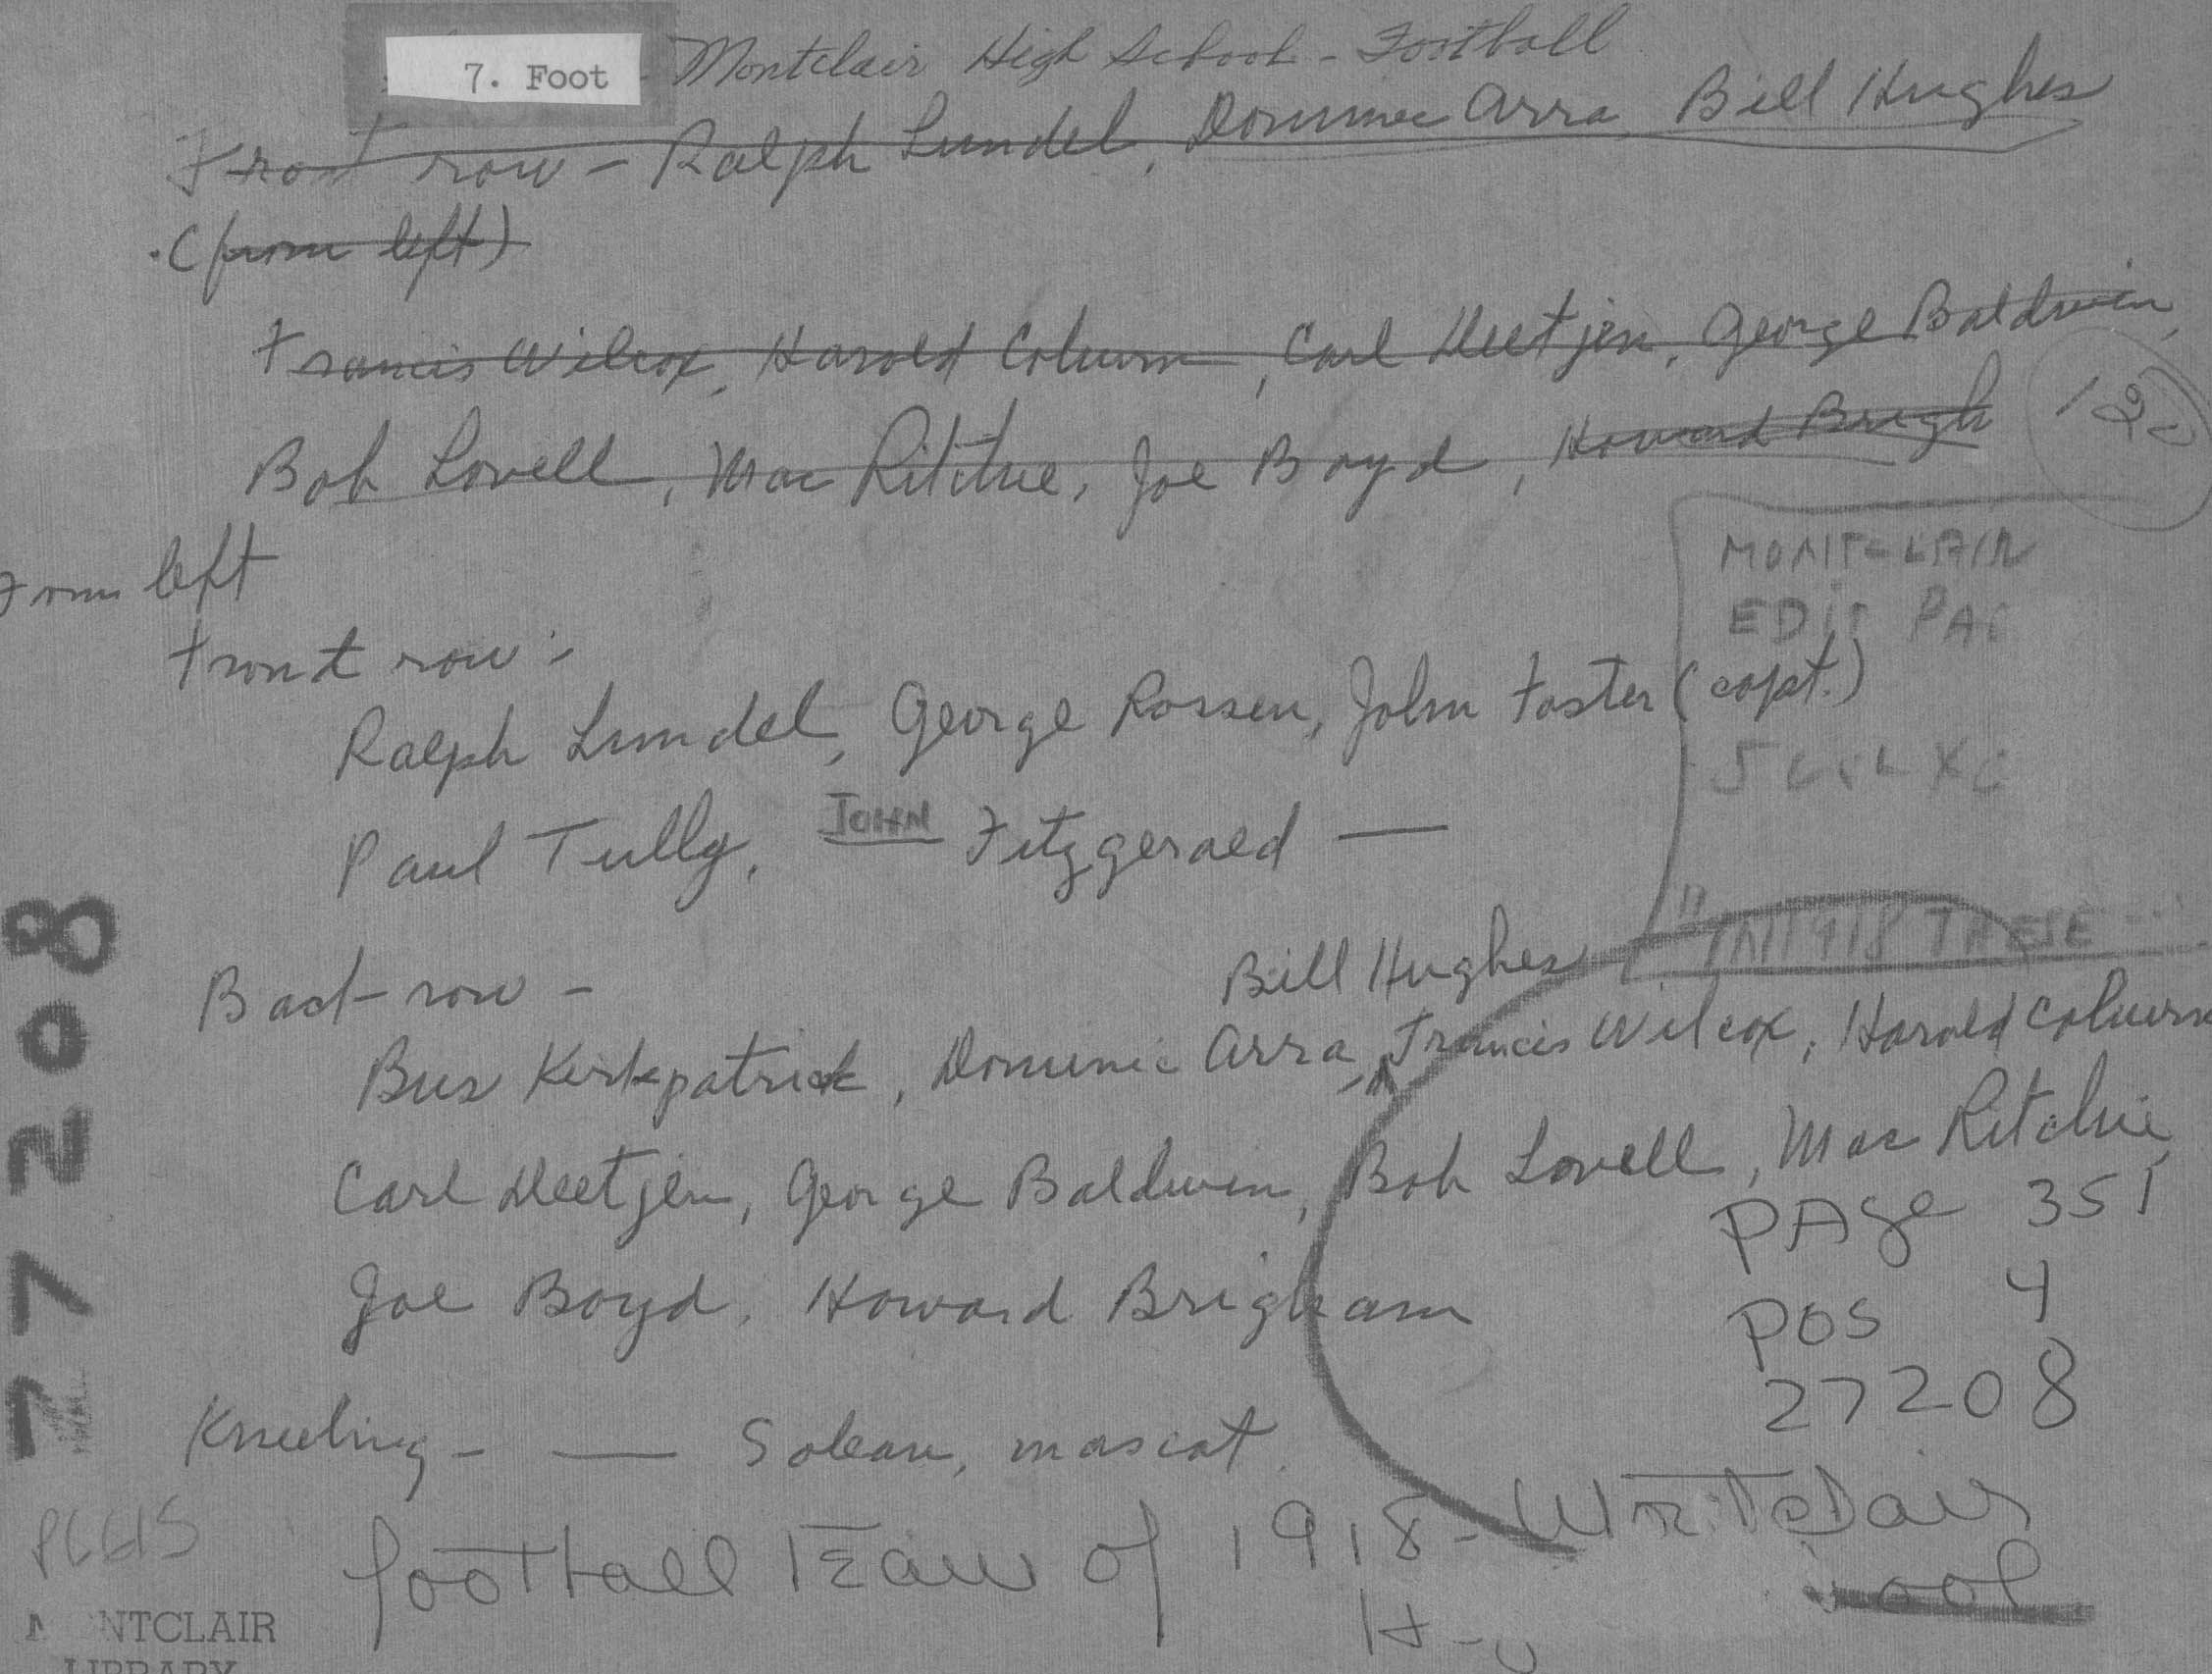 7. Foot
Montclair High School - Football
Front row - Ralph Lundel, Dominic Arra, Bill Hughes
(from left)
Francis Wilcox, Harold Coburn, Carl Deetjen, George Baldwin,
Bob Lovell, Mac Ritchie, Joe Boyd, Howard Brigh
From left
Front row :-
Ralph Lundel, George Rossen, John Foster (capt.)
Paul Tully, JOHN Fitzgerald —
MONTCLAIR
EDIT PAG
"IN 1918 THESE --
Back row -
Bill Hughes
Bus Kirkpatrick, Dominic Arra, Francis Wilcox, Harold Coburn
Carl Deetjen, George Baldwin, Bob Lovell, Mac Ritchie,
Joe Boyd, Howard Brigham
PAge 351
POS 4
27208
Kneeling - — Solean, mascot.
football Team of 1918 - Montclair
27208
NTCLAIR
LIBRARY